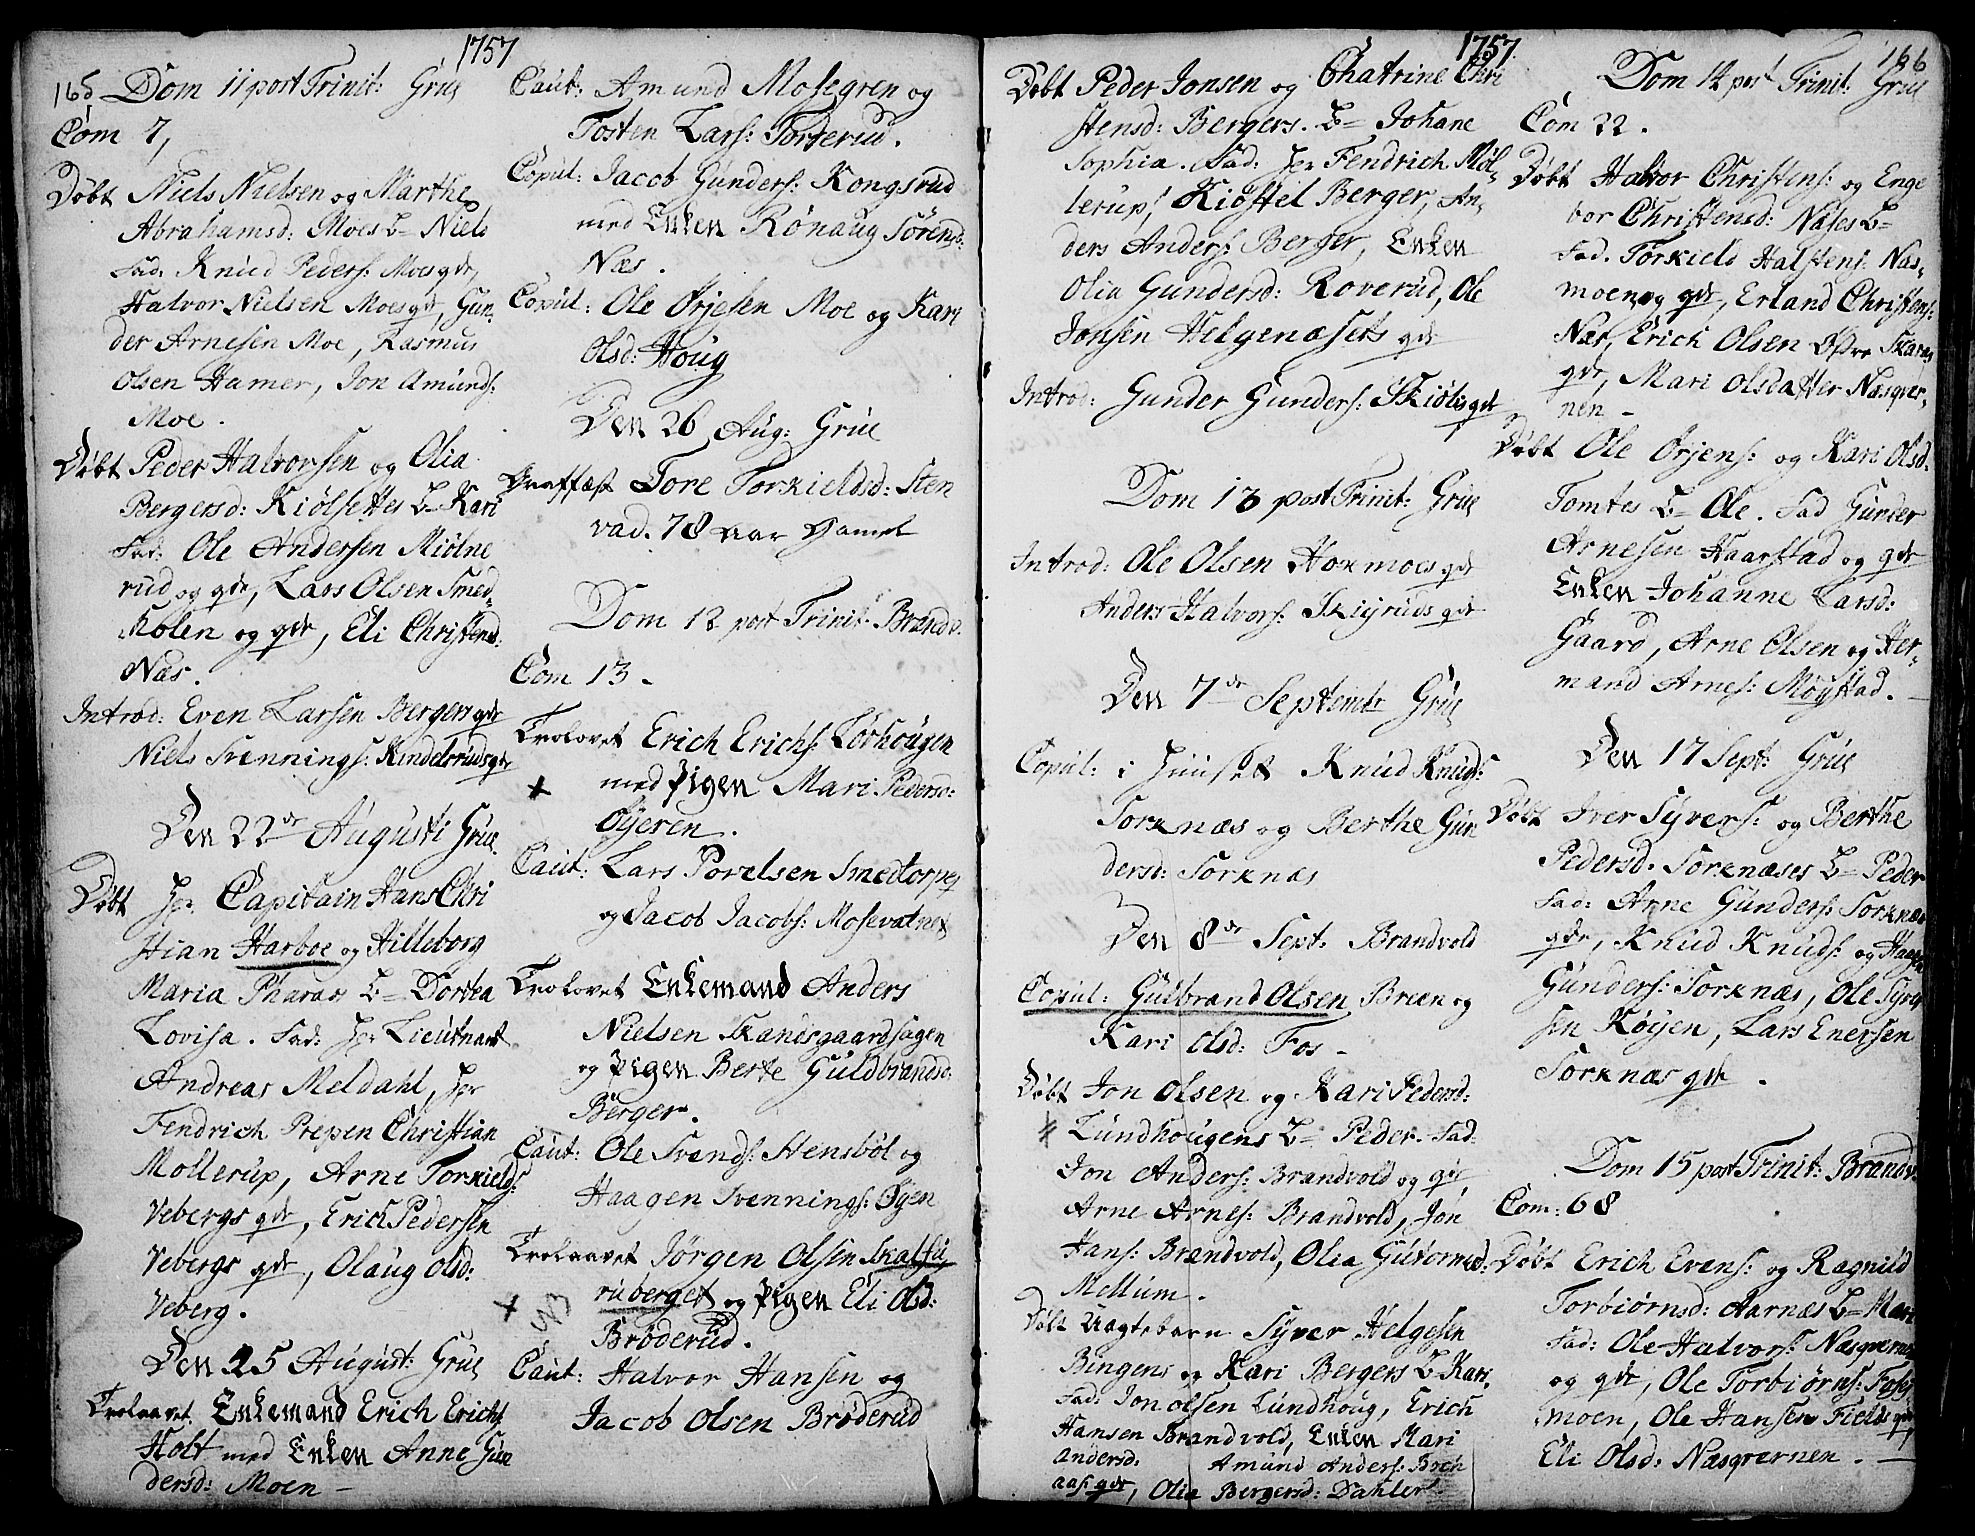 1757
165 Dom 11 post Trinit: Grue
Com 7,
Døbt Niels Nielsen og Marthe
Abrahamsd: Moes B= Niels
Fad. Knud Peders: Moes qde,
Halvor Nielsen Moes qde, Gun-
der Arnesen Moe, Rasmus
Olsen Hamer, Jon Amunds:
Moe.
Døbt Peder Halvorsen og Olia
Bergersd: Kiølsettes B= Kari
Fad: Ole Andersen Miølne
rud og qde, Lars Olsen Smed-
Kolen og qde, Eli Christensd:
Næs.
Introd: Even Larsen Bergers qde
Niels Svennings: Kindelsruds qde
Den 22de Augusti Grue
Døbt Hr. Capitain Hans Chri
stian Harboe og Hilleborg
Maria Pharas B= Dortea
Lovisa. Fad: Hr. Lieutnant
Andreas Meldahl, Hr
Fendrich Prepen Christian
Mollerup, Arne Torkields:
Vebergs qde, Erich Pedersen
Vebergs qde, Olaug Olsd:
Veberg.
Den 25 August: Grue
Trolaavet Enkemand Erich Erichs:
Holt med Enken Anne Gun
dersd: Moen -
Caut: Amund Mosegren og
Tosten Lars: Torderud.
Copul: Jacob Gunders: Kongsrud
med Enken Rønaug Sørensd:
Næs.
Copul: Ole Ørjesen Moe og Kari
Olsd: Houg
Den 26 Aug: Grue
Graffæst Tore Torkieldsd: Sten
vad. 78 aar Gamel
Dom 12 post Trinit: Brandv.
Com 13 -
Trolovet Erich Erichs: Lørhougen
med Pigen Mari Pedersd:
Øyeren.
Caut: Lars Povelsen Smedtorpet
og Jacob Jacobs: Mosevatnet
Trolovet Enkemand Anders
Nielsen Skandsgaardsagen
og Pigen Berte Guldbrandsd:
Berger.
Caut: Ole Svends: Stensbøl og
Haagen Svennings: Øyen
Trolaavet Jørgen Olsen Skalfu
ruberget og Pigen Eli Olsd:
NB
Brøderud.
Caut: Halvor Hansen og
Jacob Olsen Brøderud
1757
Døbt Peder Jonsen og Chatrine Chri
stensd: Bergers. B= Johane
Sophia. Fad: Hr Fendrich Møl-
lerup, Kiøstel Berger, An-
ders Anders: Berger, Enken
Olia Gundersd: Roverud, Ole
Jonsen Helgenæsets qde
Introd: Gunder Gunders: Skiølis qde
Dom 13 post Trinit: Grue
Introd: Ole Olsen Hokmoes qde
Anders Halvors: Skiyruds qde
Den 7de Septembr Grue
Copul: i Huuset Knud Knuds:
Torknæs og Berthe Gun
dersd: Torknæs
Den 8de Sept: Brandvold
Copul: Gulbrand Olsen Breen og
Kari Olsd: Fos -
Døbt Jon Olsen og Kari Pedersd:
Lundhougens B= Peder. Fad:
Jon Anders: Brandvold og qde
Arne Arnes: Brandvold, Jon
Hans: Brandvold, Olia Gutormsd:
Mellum.
Døbt Uægtebarn Syver Helgesen
Bingens og Kari Bergers B= Kari.
Fad: Jon Olsen Lundhoug, Erich
Hansen Brandvold, Enken Mari
Andersd: Amund Anders: Broh
aas qde, Olia Bergersd: Dahler
166
Dom 14 post Trinit: Grue
Com 22.
Døbt Halvor Christens: og Enge
bor Christensd: Næses B=
Fad. Torkield Halstens: Næs-
moen og qde, Erland Christens:
Næs, Erich Olsen Østre Skaras
qde, Mari Olsdatter Næsqver-
nen -
Døbt Ole Ørjens: og Kari Olsd:
Tomtes B= Ole. Fad Gunder
Arnesen Haarstad og qde
Enken Johanne Larsd:
Gaard, Arne Olsen og Her-
mand Arnes: Møystad. -
Den 17 Sept: Grue
Døbt Iver Syvers: og Berthe
Pedersd: Torknæses B= Peder
Fad: Arne Gunders: Torknæs
qde, Knud Knuds: og Haagen
Gunders: Torknæs, Ole Syver
sen Køyen, Lars Enersen
Torknæs qde.
Dom 15 post Trinit: Brandv.
Com: 68
Døbt Erich Evens: og Ragnild
Torbiørnsd: Aarnæs B= Mari
Fad: Ole Halvors: Næsqvernen
og qde, Ole Torbiørns: Foses
moen, Ole Hansen Fields qde,
Eli Olsd: Næsqvernen. -